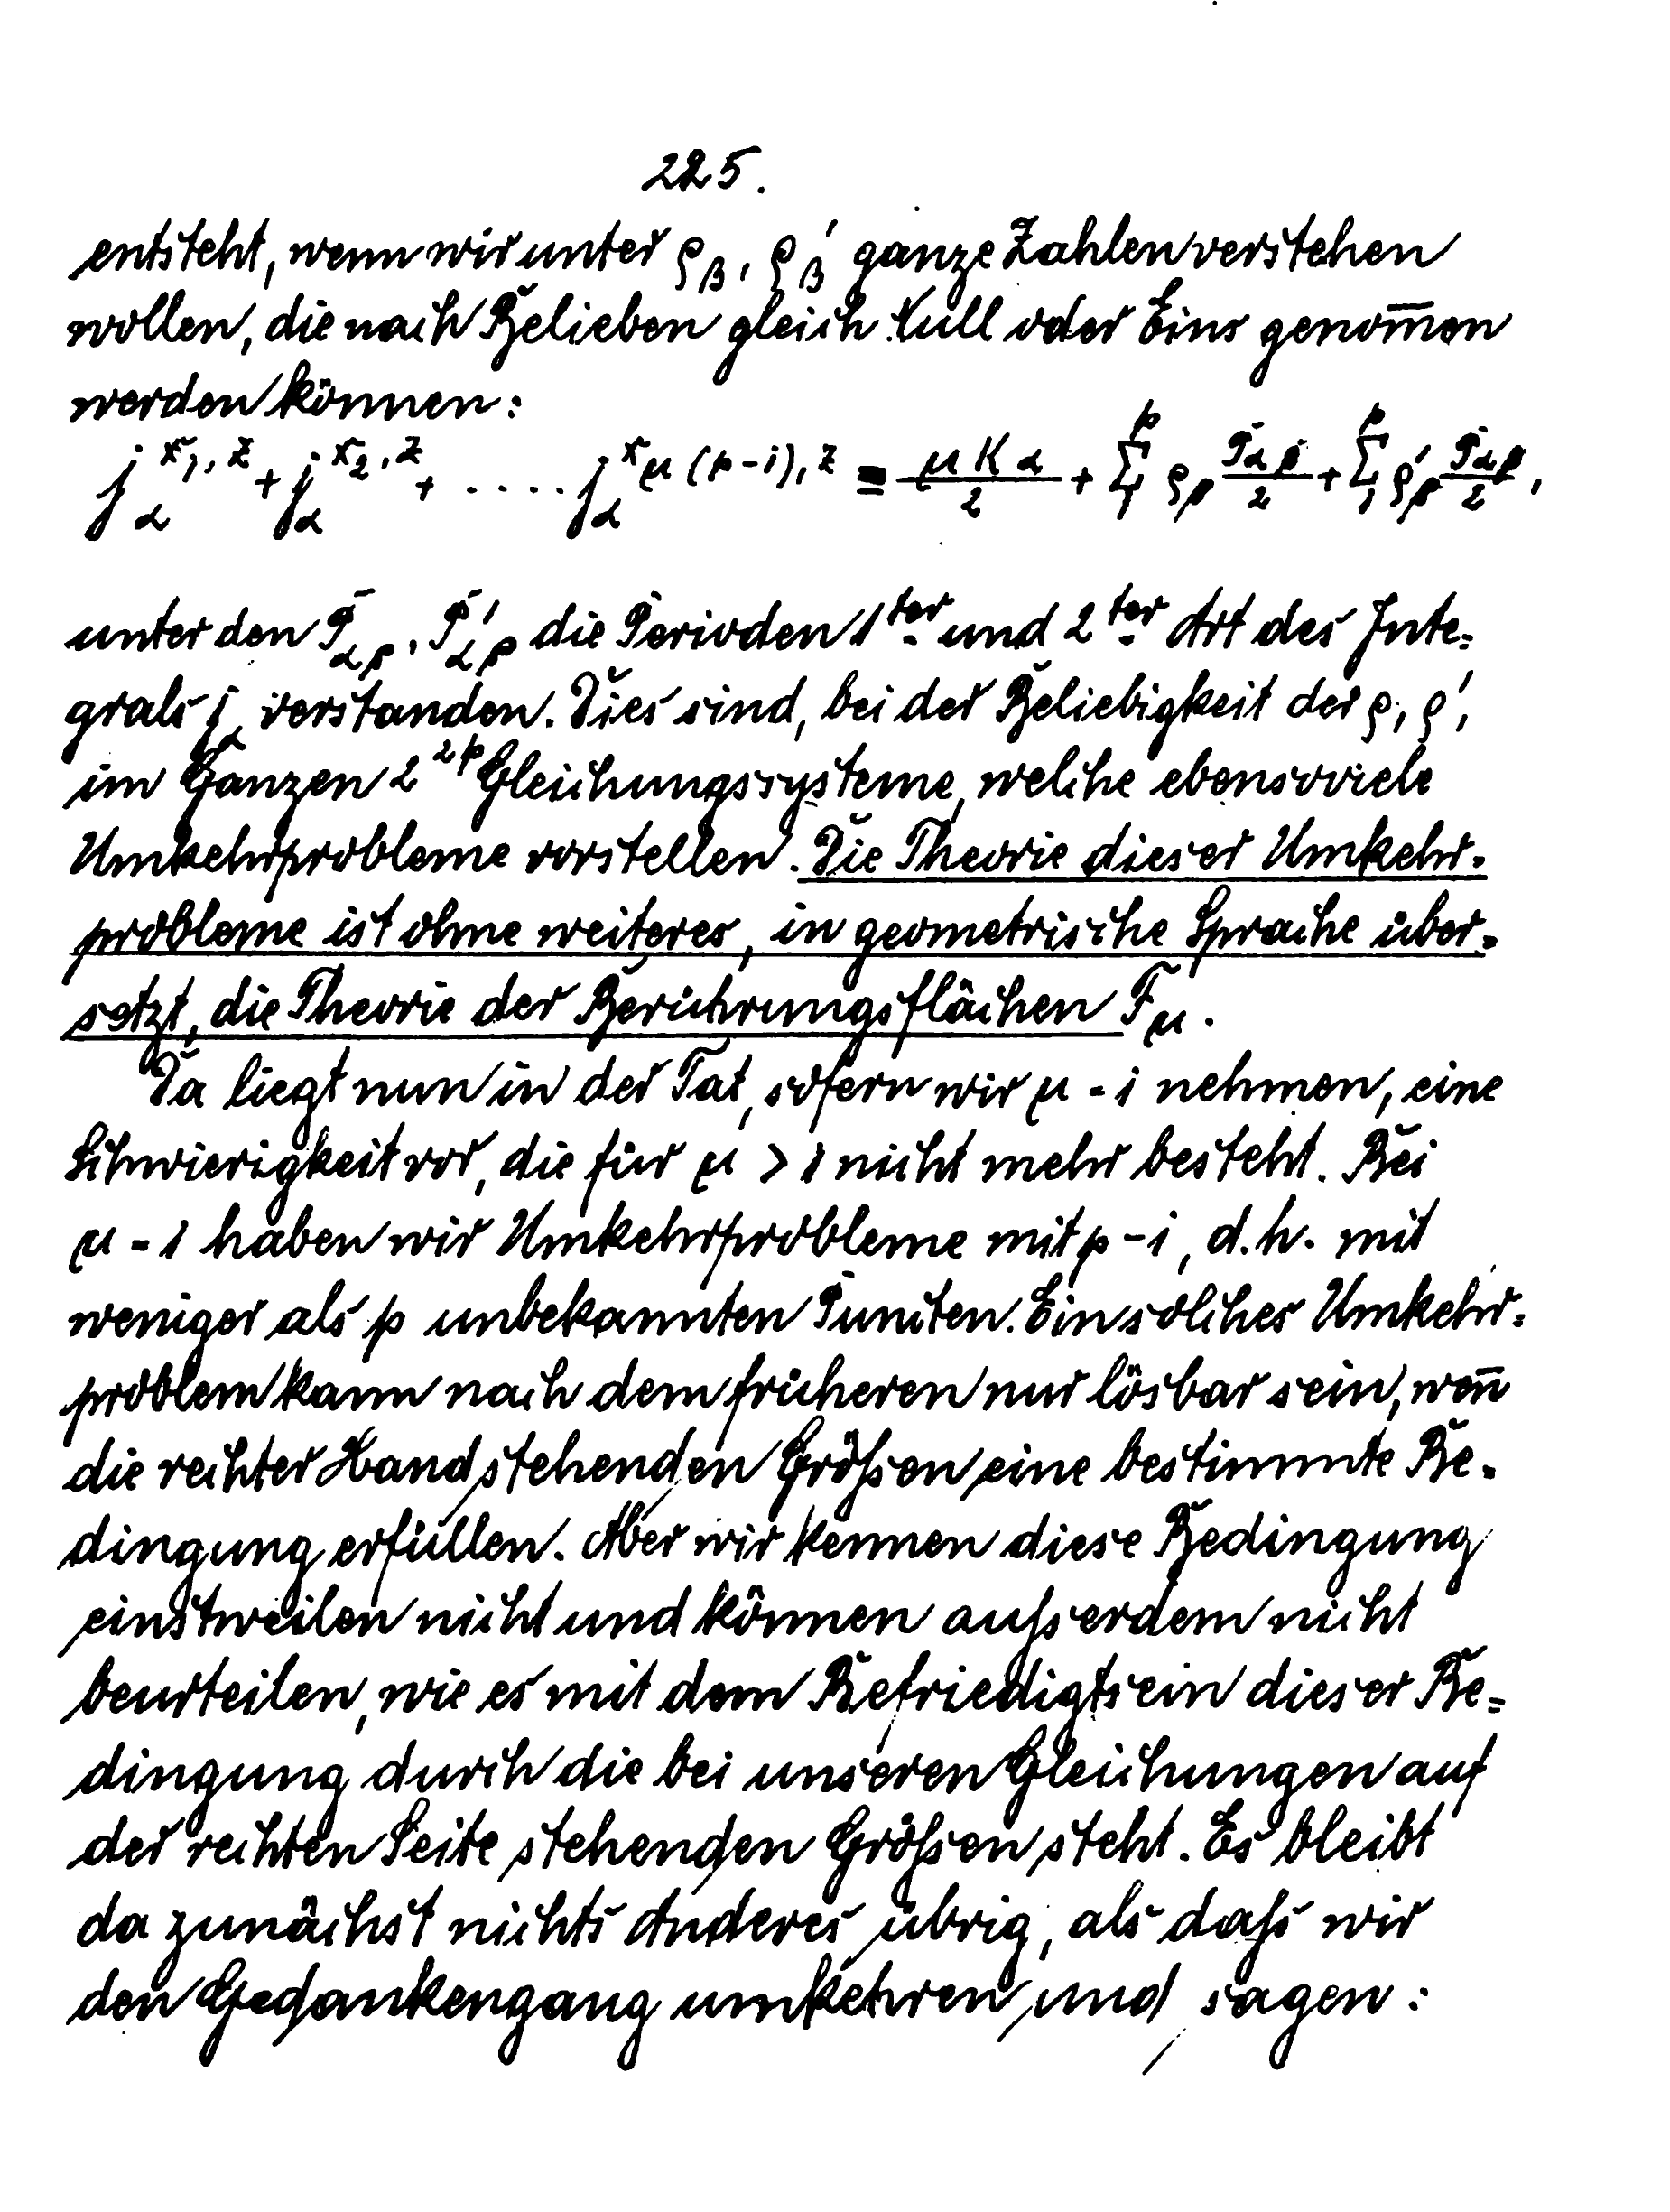 225.
entsteht, wenn wir unter ϱ_β, ϱ_β′ ganze Zahlen verstehen
wollen, die nach Belieben gleich Null oder Eins genom̅en
werden können:
j_α^{x_1, z} + j_α^{x_2, z} + ..... j_α^{x_{μ(p-1)}, z} ≡ μKα/2 + Σ_1^p ϱ_β P_{αβ}/2 + Σ_1^p ϱ′_β P′_{αβ}/2,
unter den P_{αβ}, P′_{αβ} die Perioden 1ter und 2ter Art des Inte-
grals j_α verstanden. Dies sind, bei der Beliebigkeit der ϱ, ϱ′,
im Ganzen 2^{2p} Gleichungssysteme, welche ebensoviele
Umkehrprobleme vorstellen. Die Theorie dieser Umkehr-
probleme ist ohne weiteres, in geometrische Sprache über-
setzt, die Theorie der Berührungsflächen F_μ.
Da liegt nun in der Tat, sofern wir μ = 1 nehmen, eine
Schwierigkeit vor, die für μ > 1 nicht mehr besteht. Bei
μ = 1 haben wir Umkehrprobleme mit p-1, d.h. mit
weniger als p unbekannten Puncten. Ein solches Umkehr-
problem kann nach dem früheren nur lösbar sein, wen̅
die rechter Hand stehenden Größen eine bestimmte Be-
dingung erfüllen. Aber wir kennen diese Bedingung
einstweilen nicht und können außerdem nicht
beurteilen, wie es mit dem Befriedigtsein dieser Be-
dingung durch die bei unseren Gleichungen auf
der rechten Seite stehenden Größen steht. Es bleibt
da zunächst nichts Anderes übrig, als daß wir
den Gedankengang umkehren und sagen: